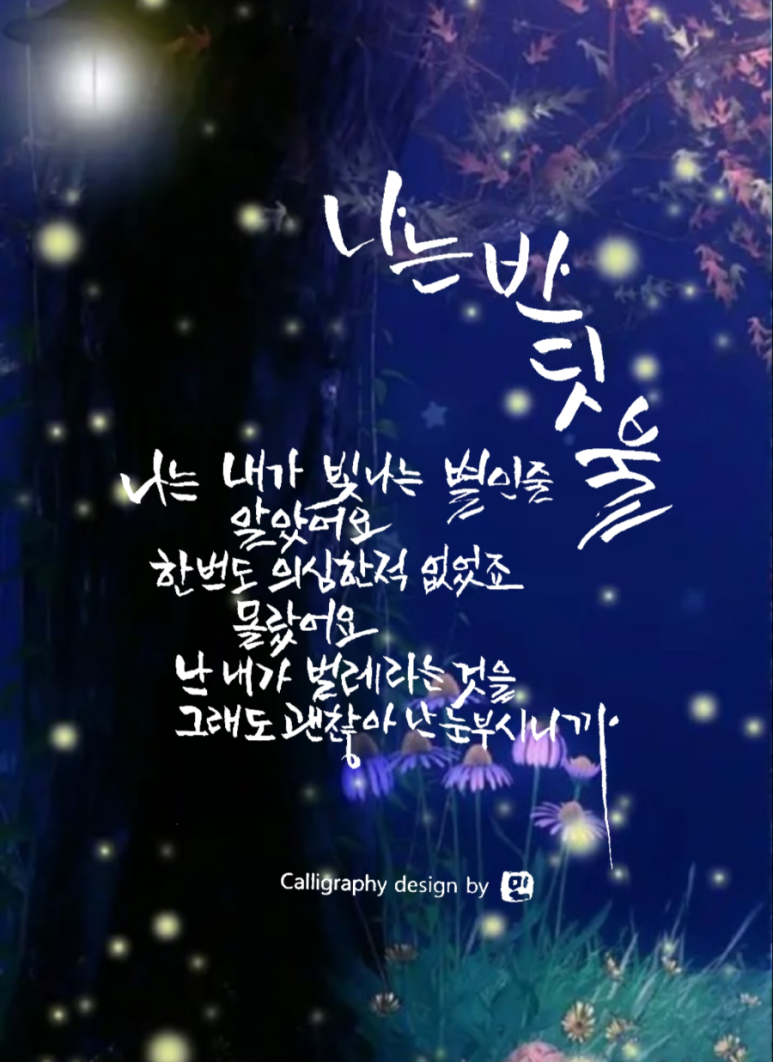 나는 반딧불
나는 내가 빛나는 별인줄
알았어요
한번도 의심한적 없었죠
몰랐어요
난 내가 벌레라는 것을
그래도 괜찮아 난 눈부시니까
Calligraphy design by 민